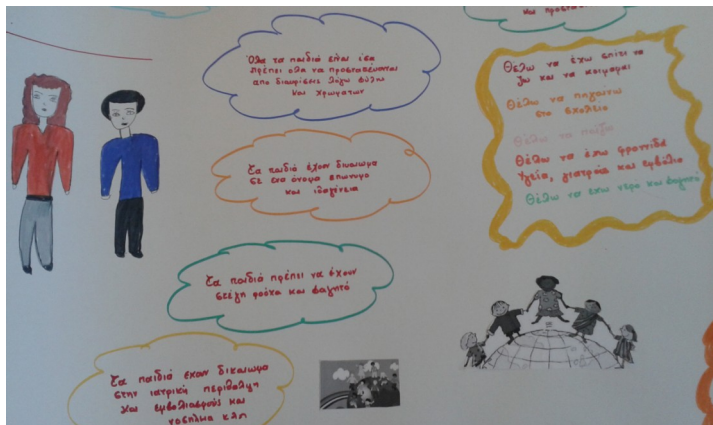 και προστα
Όλα τα παιδιά είναι ίσα
πρέπει όλα να προστατεύονται
απο διακρίσεις λόγω φύλου
και χρωμάτων
Τα παιδιά έχουν δικαίωμα
σε ενα όνομα επώνυμο
και ιθαγένεια
Τα παιδιά πρέπει να έχουν
στέγη ρούχα και φαγητό
Τα παιδιά έχουν δικαίωμα
στην ιατρική περίθαλψη
και εμβολιασμούς και
νοσήλια κλπ
Θέλω να έχω σπίτι να
ζω και να κοιμαμαι
Θέλω να πηγαίνω
στο σχολείο
Θέλω να παίζω
Θέλω να έχω φροντίδα
Υγεία, γιατρούς και εμβόλια
Θέλω να έχω νερο και φαγητό